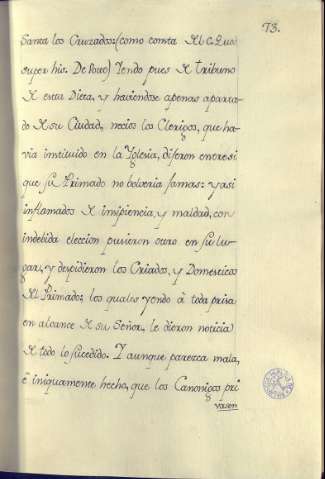 73.
Santa los Cruzados: (como consta del c. Quod
super his. De Voto) Yendo pues de tribuno
de esta Dieta, y haviendose apenas aparta-
do de su Ciudad, necios los Clerigos, que ha-
via instituido en la Yglesia, dijeron entre si
que su Primado no bolveria jamas: y asi
inflamados de insipiencia, y maldad, con
indebida eleccion pusieron otro en su lu-
gar, y despidieron los Criados, y Domesticos
del Primado; los quales yendo à toda prisa
en alcance de su Señor, le dieron noticia
de todo lo sucedido. Y aunque parezca mala,
è iniquamente hecho, que los Canonigos pri
vasen